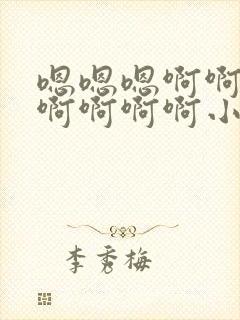 嗯嗯嗯啊啊
啊啊啊啊小
李秀梅